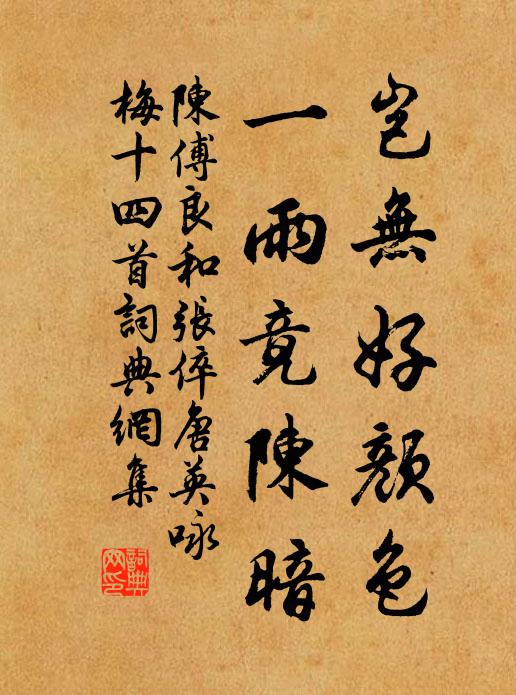 豈無好顏色
一雨竟陳暗
陳傅良和張倅唐英咏
梅十四首詞典網集
詞典
网印